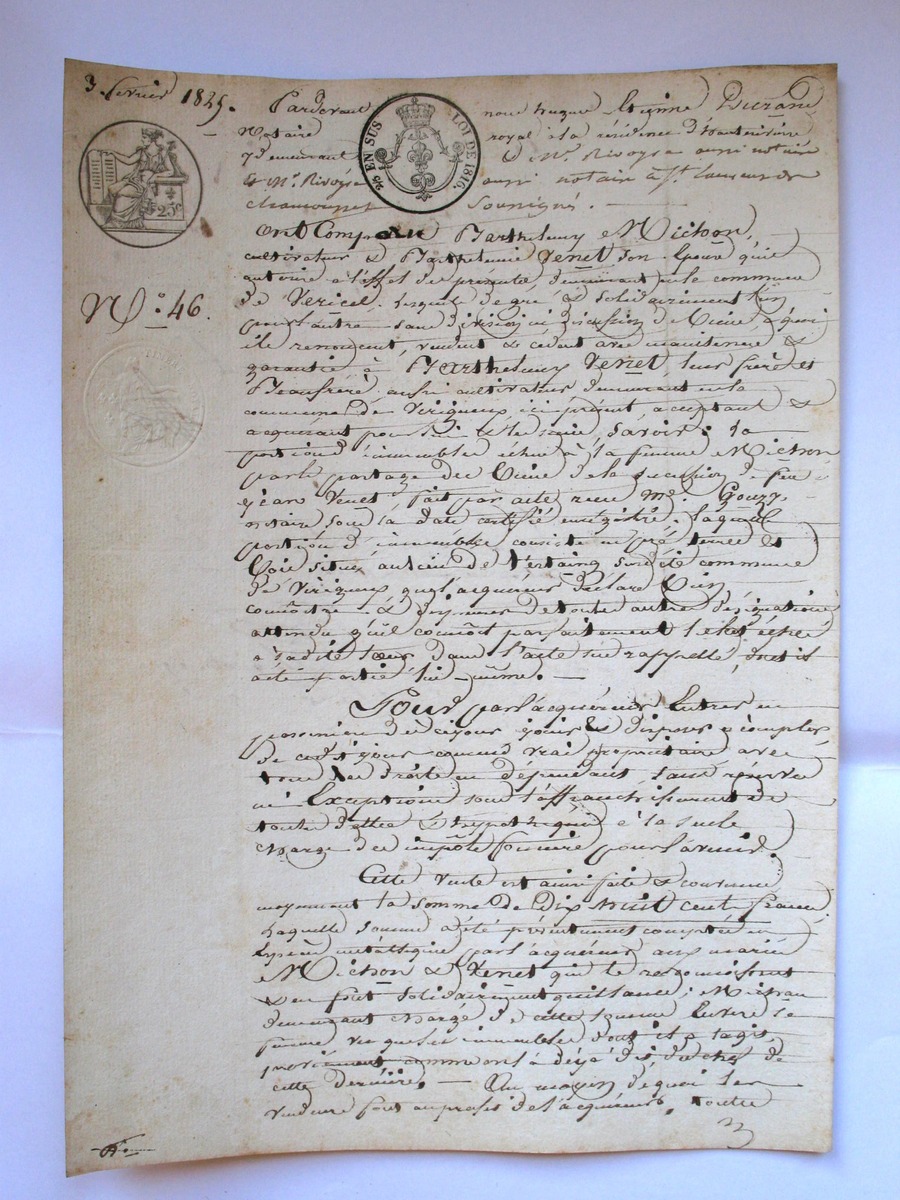 3. février 1825.
25c
EN SUS
LOI DE 1816.
N.o 46.
Pardevant nous hugue Etienne Durand
Notaire royal à la résidence d'hauterivoire
y demeurant & Mr. Rivoyre aussi notaire
& Mr. Rivoye aussi notaire à st. Laurent de
chamousset soussignés.
Ont Comparu Barthelemy Michon,
cultivateur & Barthelemie Venet son Epouse qu'il
autorise à l'effet des présentes, demeurant en la commune
de Lesquels de gré & solidairement l'un
pour l'autre sans division ni discussion de biens à quoi
ils renoncent, vendent & cedent avec maintenue &
garantie à Barthelemy Venet leur frère et
Beaufrère, aussi cultivateur demeurant en la
commune de Virigneux, ici présent, acceptant &
acquerant pour lui & les siens, savoir : la
portion d'immeubles échue à la femme Michon
par le partage des biens de la succession de feu
jean Venet fait par acte reçu me. Gouzy
notaire sous la date certifié enregistré. Laquelle
portion d'immeubles consiste en pré terres et
bois situés au lieu de sur dite commune
de Virigneux, que l'acquéreur déclare bien
connoître & dispenser de toute autre désignation
attendu qu'il connoit parfaitement le lot échu
à sadite sœur dans l'acte sus rappellé, dont il
a été partie lui-même. —
Pour par l'acquéreur Entrer en
possession dès ce jour jouir & disposer à compter
de cedit jour comme vrai propriétaire avec
tous les droits en dépendant, sans réserve
ni Exception sous l'affranchissement de
toutes dettes & hypothèques à la seule
charge des impôts foncier pour l'avenir.
Cette vente est ainsi faite & convenue
moyennant la somme de Dix huit cent francs
Laquelle somme a été présentement comptée en
Espèces métalliques par l'acquéreur aux mariés
Michon & Venet qui le reconnoissent
& en font solidairement quittance ; Michon
demeurant chargé de cette somme Envers sa
femme vu que les immeubles dont il s'agit
proviennent comme on l'a déjà dit, du chef de
cette dernière. — Au moyen de quoi les
vendeurs font au profit de l'acquéreur, toutte